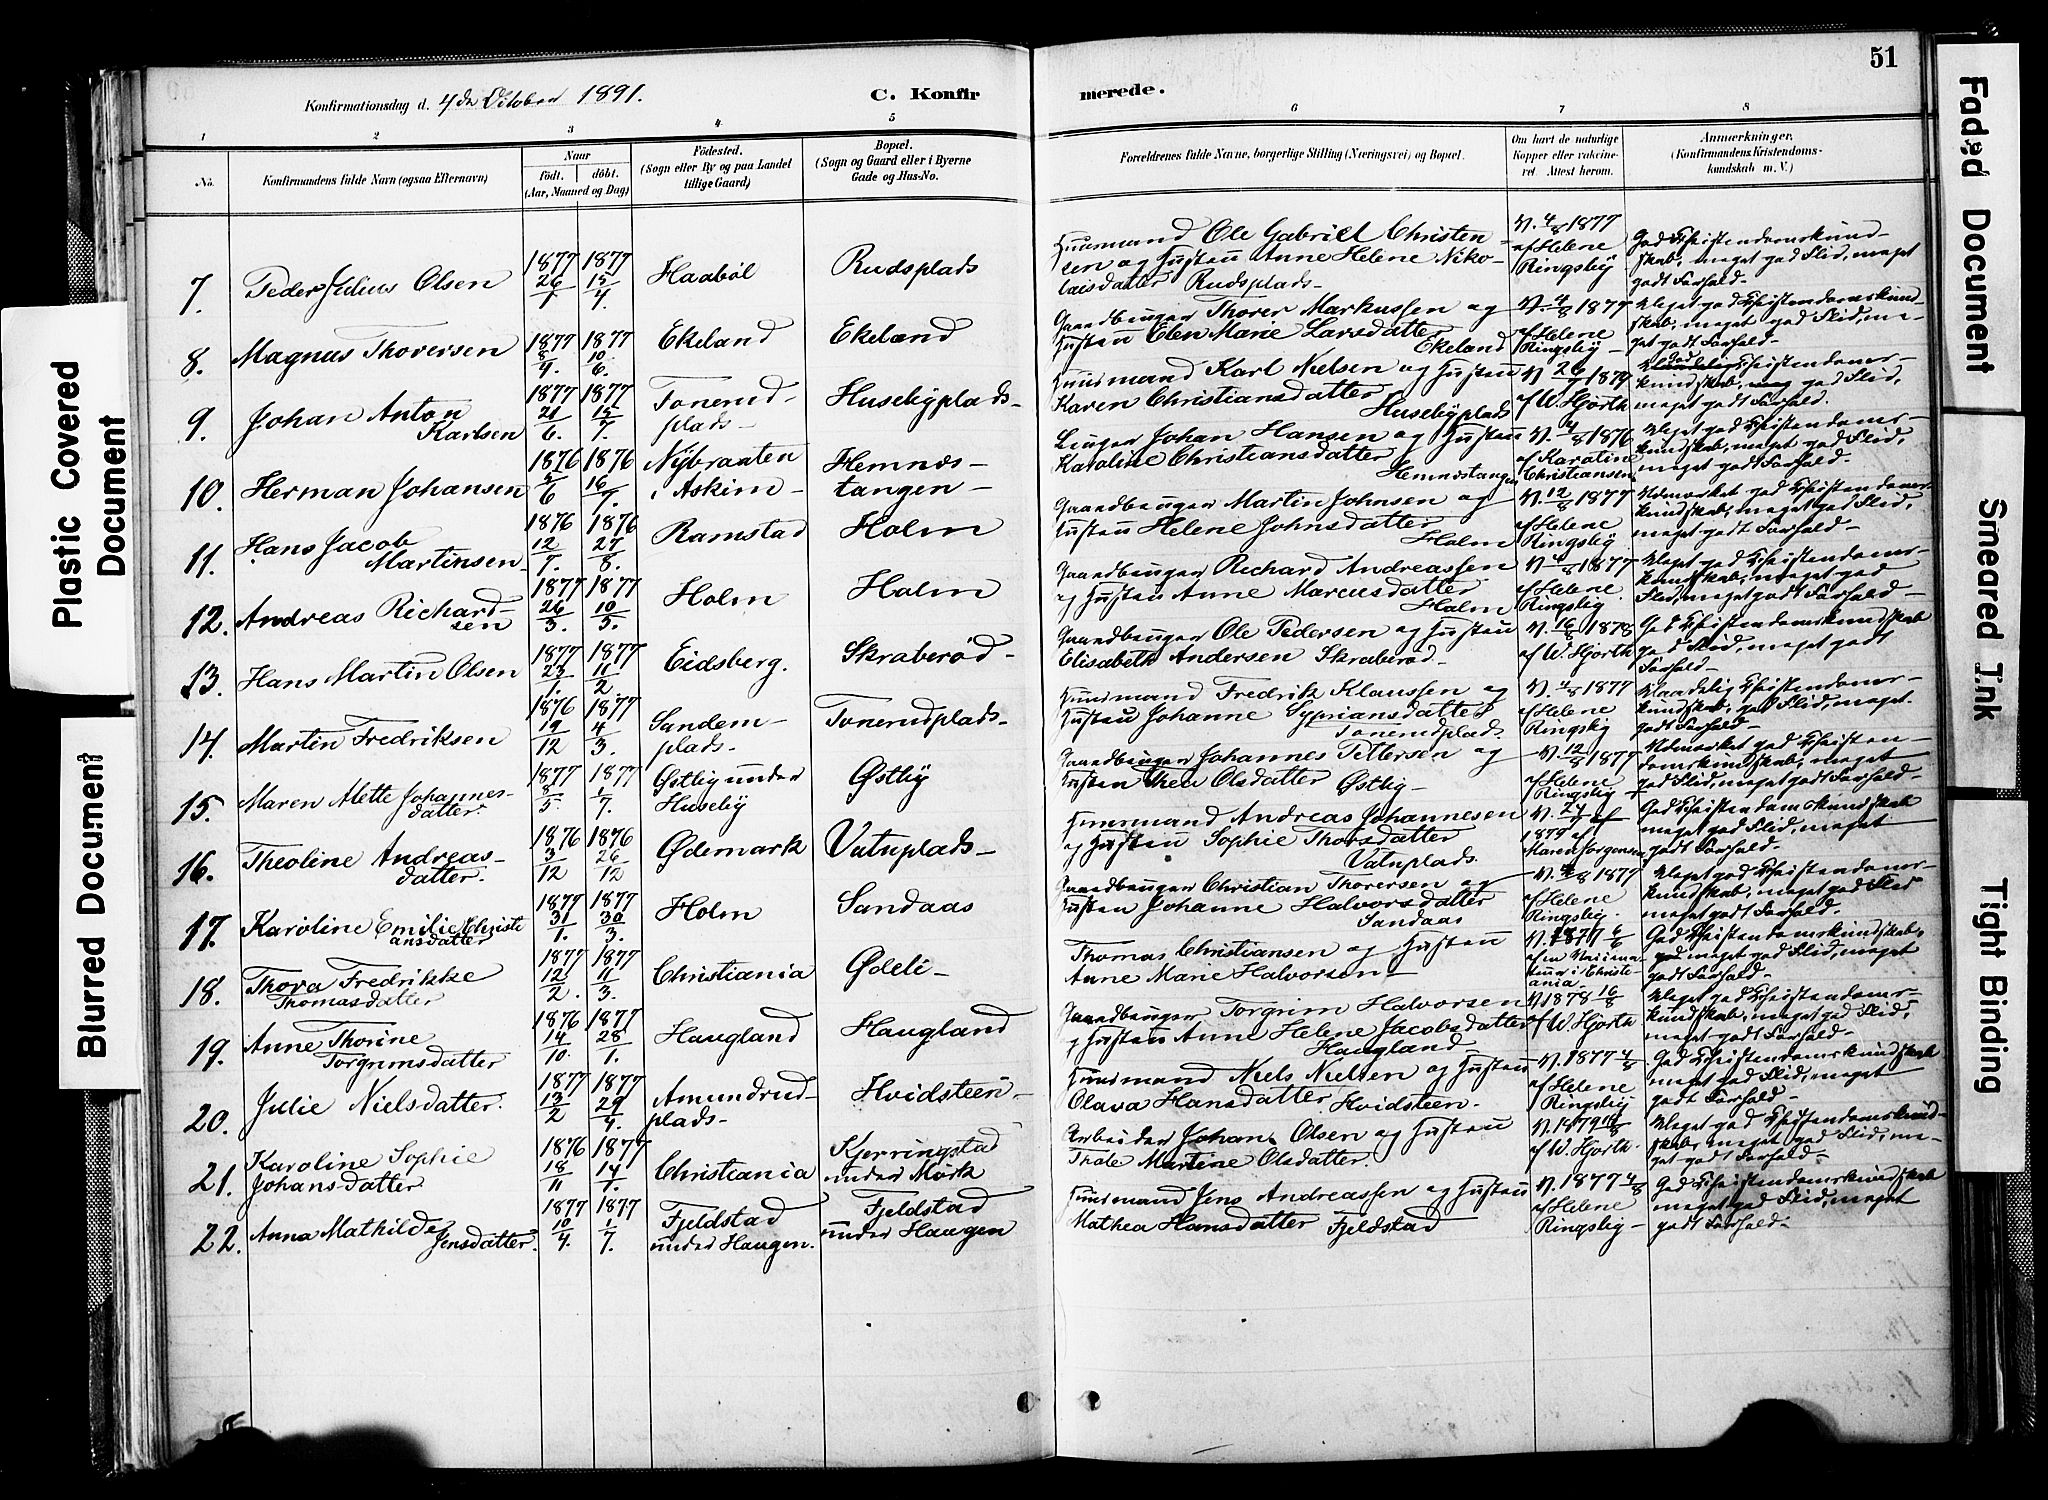 51
Konfirmationsdag d. 4de October 1891.
C. Konfir
merede.
1 2 3 4. 5 6 7 8
No.
Konfirmandens fulde Navn (ogsaa Efternavn)
Naar
födt. döbt.
(Aar, Maaned og Dag)
Födested.
(Sogn eller By og paa Landet
tillige Gaard)
Bopæl.
(Sogn og Gaard eller i Byerne
Gade og Hus-No.
Forældrenes fulde Navne, borgerlige Stilling (Næringsvei) og Bopæl.
Om havt de naturlige
Kopper eller vakcine-
ret. Attest herom.
Anmærkninger.
(Konfirmandens Kristendoms-
kundskab m. V.)
7. Peder Julius Olsen 1877 26/1 1877 15/4. Haabøl Rudsplads
Huusmand Ole Gabriel Christen-
sen og Hustru Anne Helene Niko-
laisdatter Rudsplads-
V. 4/8 1877
af Helene
Ringsby
God Christendomskund-
skab, meget god Flid, meget
godt Forhold-
8. Magnus Thoversen 1877 8/4. 1877 10/6. Ekeland Ekeland
Gaardbruger Thorer Markussen og
Hustru Elen Marie Larsdatter
Ekeland
V. 4/8 1877
af Helene
Ringsby-
Meget god Christendomskund-
skab, meget god Flid, me-
get godt Forhold-
9. Johan Anton
Karlsen 1877 21/6. 1877 15/7. Tonerud-
plads- Husebyplads-
Huusmand Karl Nielsen og Hustru
Karen Christiansdatter
Husebyplads
af W. Hjorth
god
kundskab, god Flid,
meget godt Forhold.
10. Herman Johansen 1876 1876 16/7. Nybraaten
i Askim- Hemnes-
tangen-
Johan Hansen og Hustru
Karoline Christiansdatter
Hemnestangen
V. 4/8 1876
af Karoline
Christiansen
Meget god Christendoms-
kundskab, meget god Flid,
meget godt Forhold-
11. Hans Jacob
Martinsen- 1876 12/7. 1876 27/8. Ramstad Holm
Gaardbruger Martin Johnsen og
Hustru Helene Johnsdatter
Holm
V. 12/8 1877
af Helene
Ringsby
Udmærket god Christendoms-
kundskab, meget god Flid,
meget godt Forhold-
12. Andreas Richard-
sen 1877 26/3. 1877 10/5. Holm Holm
Gaardbruger Richard Andreassen
og Hustru Anne Marcusdatter
Holm
V. 4/8 1877
af Helene
Ringsby.
Meget god Christendoms-
kundskab, meget god
Flid, meget godt Forhold-
13. Hans Martin Olsen 1877 23/1. 1877 11/2. Eidsberg. Skraberød-
Gaardbruger Ole Pedersen og Hustru
Elisabeth Andersen Skraberød-
V. 16/8 1878
af W. Hjorth
God Christendomskundskab
god Flid, meget godt
Forhold-
14. Martin Fredriksen 1876 19/12 1877 4/3. Sandem-
plads- Tonerudplads-
Huusmand Fredrik Klaussen og
Hustru Johanne Syprians datter
Tonerudplads
V. 4/8 1877
af Helene
Ringsby
Maadelig Christendoms-
kundskab, god Flid, meget
godt Forhold-
15. Maren Mette Johannes-
datter. 1877 8/5. 1877 1/7. Østby under
Huseby Østby
Gaardbruger Johannes Pettersen og
Hustru Thea Olsdatter Østby-
V. 12/8 1877
af Helene
Ringsby
Udmærket god Christen-
domskundskab, meget
god Flid, meget godt Forhold-
16. Theoline Andreas-
datter. 1876 3/12 1876 26/12 Ødemark Vatnplads-
Huusmand Andreas Johannesen
og Hustru Sophie Thorsdatter
Vatnplads
1879 af
Maren Jorgensen
God Christendomskundskab
meget god Flid, meget
godt Forhold-
17. Karoline Emilie Christi
ansdatter 1877 31/1. 1877 30/3. Holm Sandaas
Gaardbruger Christian Thorersen og
Hustru Johanne Halvorsdatter
Sandaas
V. 4/8 1877
af Helene
Ringsby.
Meget god Christendoms-
kundskab, meget god Flid
meget godt Forhold.
18. Thora Fredrikke
Thomasdatter 1877 12/2. 1877 11/3. Christiania Ødeli-
Thomas Christiansen og Hustru
Anne Marie Halvorsen-
V. 1877 6/6
i Christi-
ania-
God Christendomskundskab,
god meget god Flid, meget
godt Forhold-
19. Anne Thorine
Torgrimsdatter 1876 14/10. 1877 28/1. Haugland Haugland
Gaardbruger Torgrim Halvorsen
og Hustru Anne Helene Jacobsdatter
Haugland
V. 1878 16/8
af W. Hjorth
Meget god Christendoms-
kundskab, meget god Flid,
meget godt Forhold-
20. Julie Nielsdatter. 1877 13/2 1877 29/4. Amundrud-
plads- Hvidsteen-
Huusmand Niels Nielsen og Hustru
Olava Hansdatter Hvidsteen-
V. 1877 4/8
af Helene
Ringsby
God Christendomskundskab
meget god Flid, meget
godt Forhold-
21. Karoline Sophie
Johans-datter 1876 18/11 1877 14/1. Christiania Kjerringstad
under Mørk
Arbeider Johan Olsen og Hustru
Thale Martine Olsdatter.
af W. Hjorth.
Meget god Christendomskund-
skab, meget god Flid, me-
get godt Forhold-
22. Anna Mathilde
Jensdatter. 1877 10/4. 1877 1/7. Fjeldstad
under Haugen. Fjeldstad
under Haugen
Huusmand Jens Andreassen og Hustru
Mathea Hansdatter Fjeldstad
V. 1877 4/8
af Helene
Ringsby-
God Christendomskundskab
meget god Flid, meget
godt Forhold-
Plastic Covered
Document
Blurred Document
Faded Document
Smeared Ink
Tight Binding